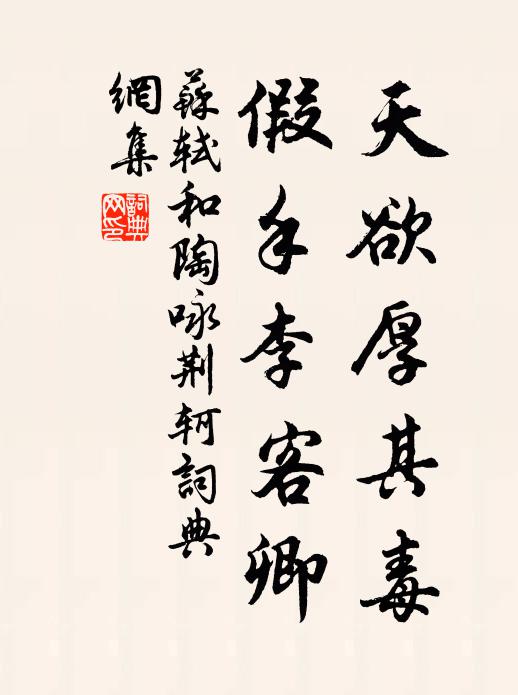 天欲厚其毒
假手李客卿
蘇軾和陶詠荆軻詞典
網集
詞典網印